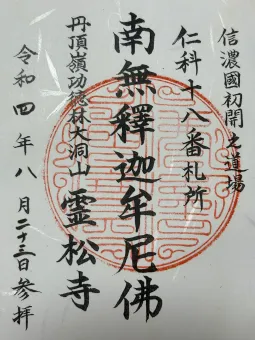 信濃國初開之道場
仁科十八番札所
南無釋迦牟尼佛
丹頂嶺功徳林大洞山 霊松寺
令和四年八月二十三日参拝